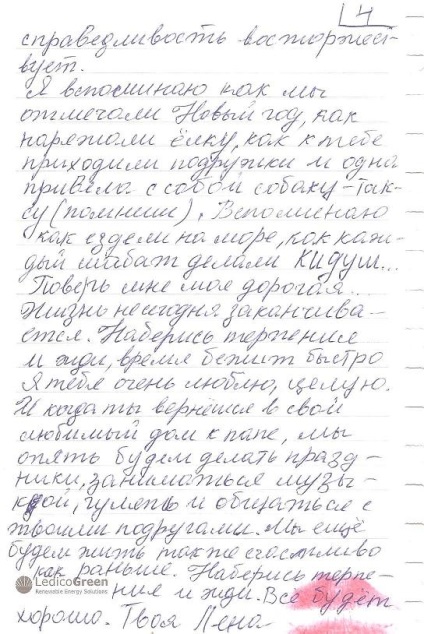 4
справедливость восторжест-
вует.
Я вспоминаю как мы
отмечали Новый год, как
наряжали ёлку, как к тебе
приходили подружки и одна
привела с собой собаку-так-
су (помнишь). Вспоминаю
как ездели на море, как каж-
дый шабат делали Кидуш...
Поверь мне моя дорогая...
Жизнь не сегодня заканчива-
ется. Наберись терпения
и жди, время бежит быстро
Я тебя очень люблю, целую.
И когда ты вернёшся в свой
любимый дом к папе, мы
опять будем делать празд-
ники, заниматься музы-
кой, гулять и общаться с
твоими подругами. Мы ещё
будем жить также счастливо
как раньше. Наберись терпе-
ния и жди. Всё будет
хорошо. Твоя Лена
LedicoGreen
Renewable Energy Solutions